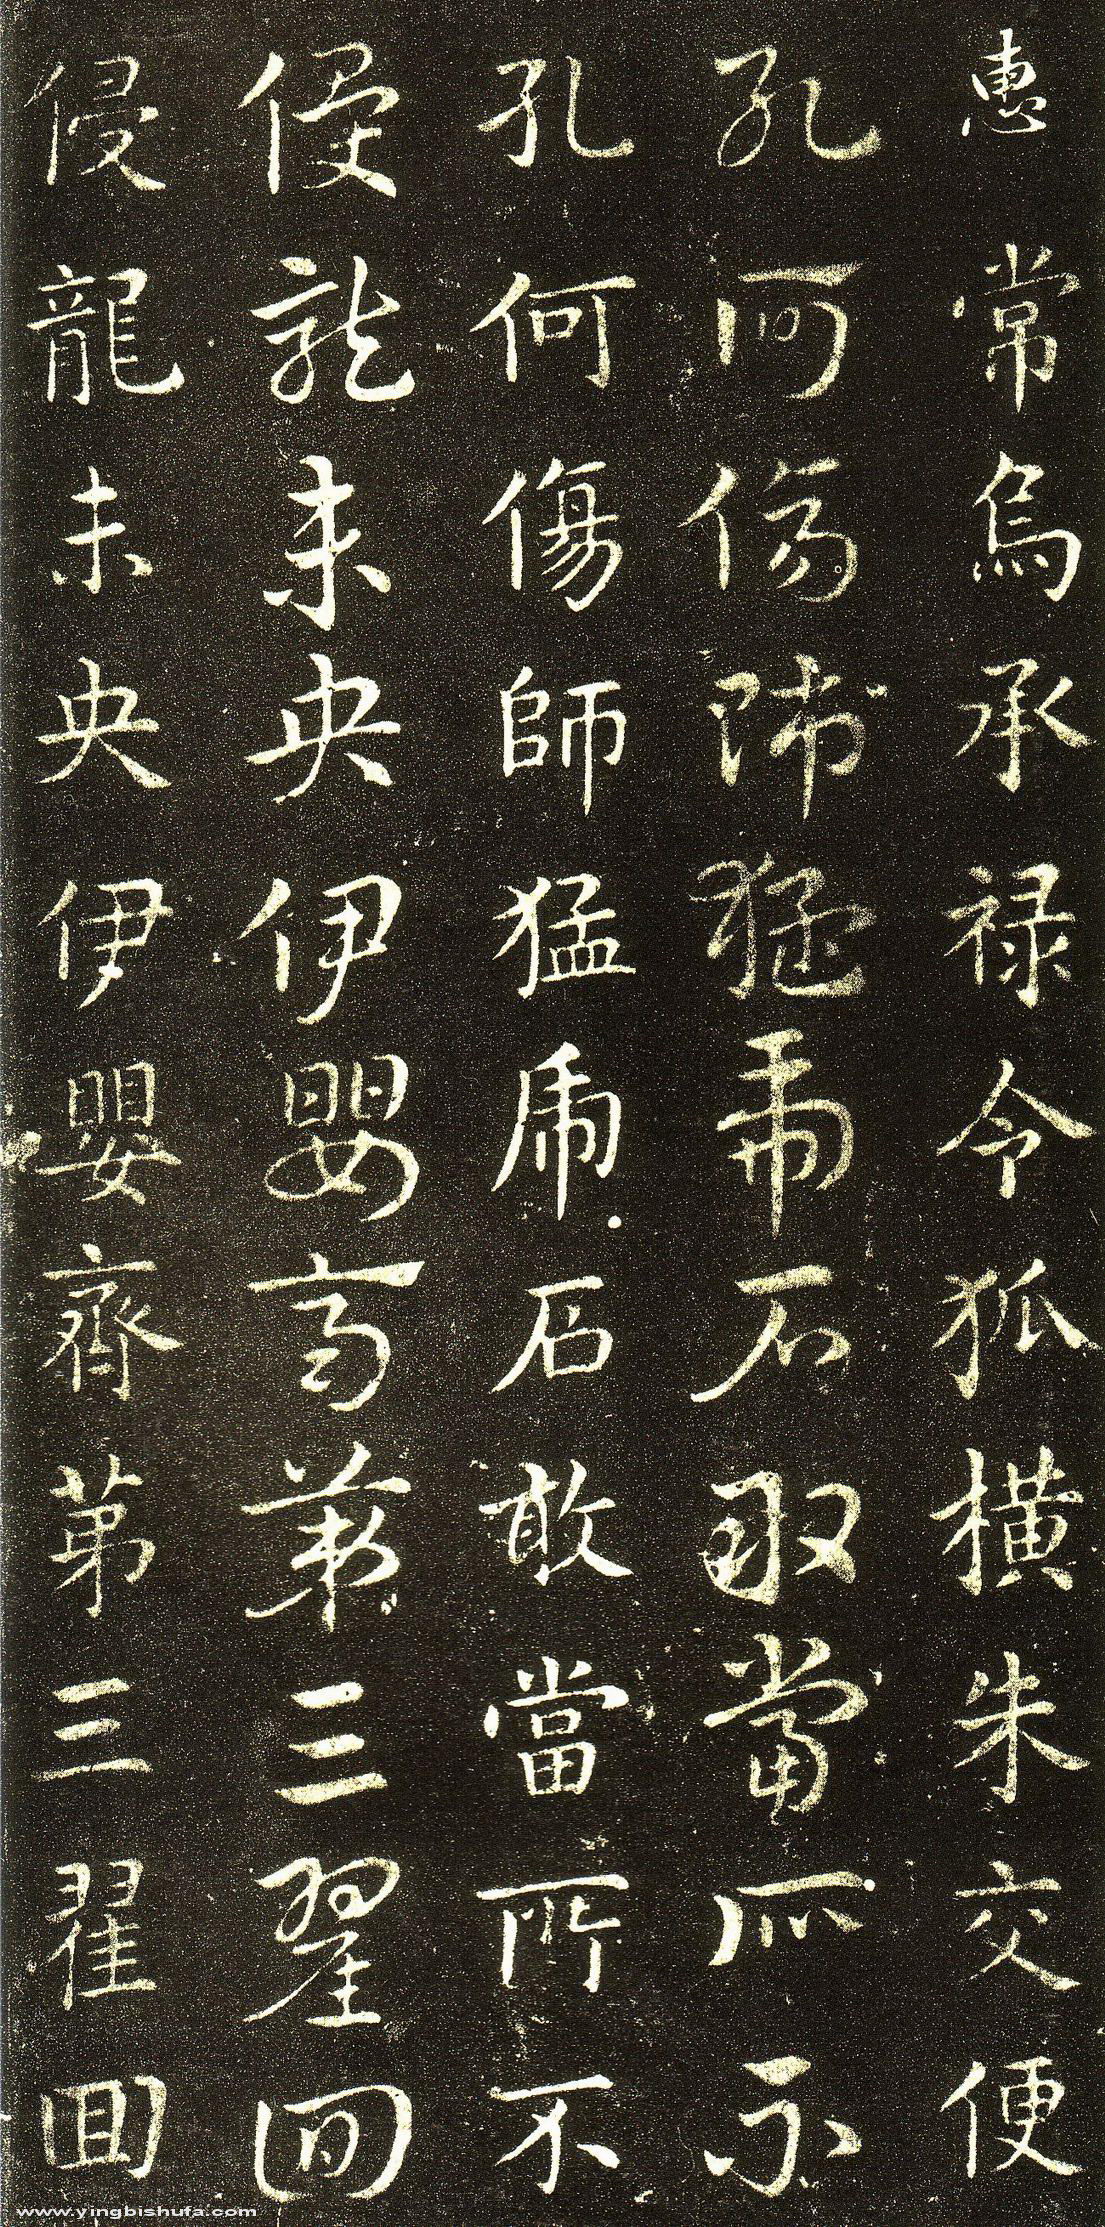 惠常烏承祿令狐橫朱交便
孔何傷師猛虎石敢當所不
孔何傷師猛虎石敢當所不
侵龍未央伊嬰齊第三翟回
侵龍未央伊嬰齊第三翟回
www.yingbishufa.com